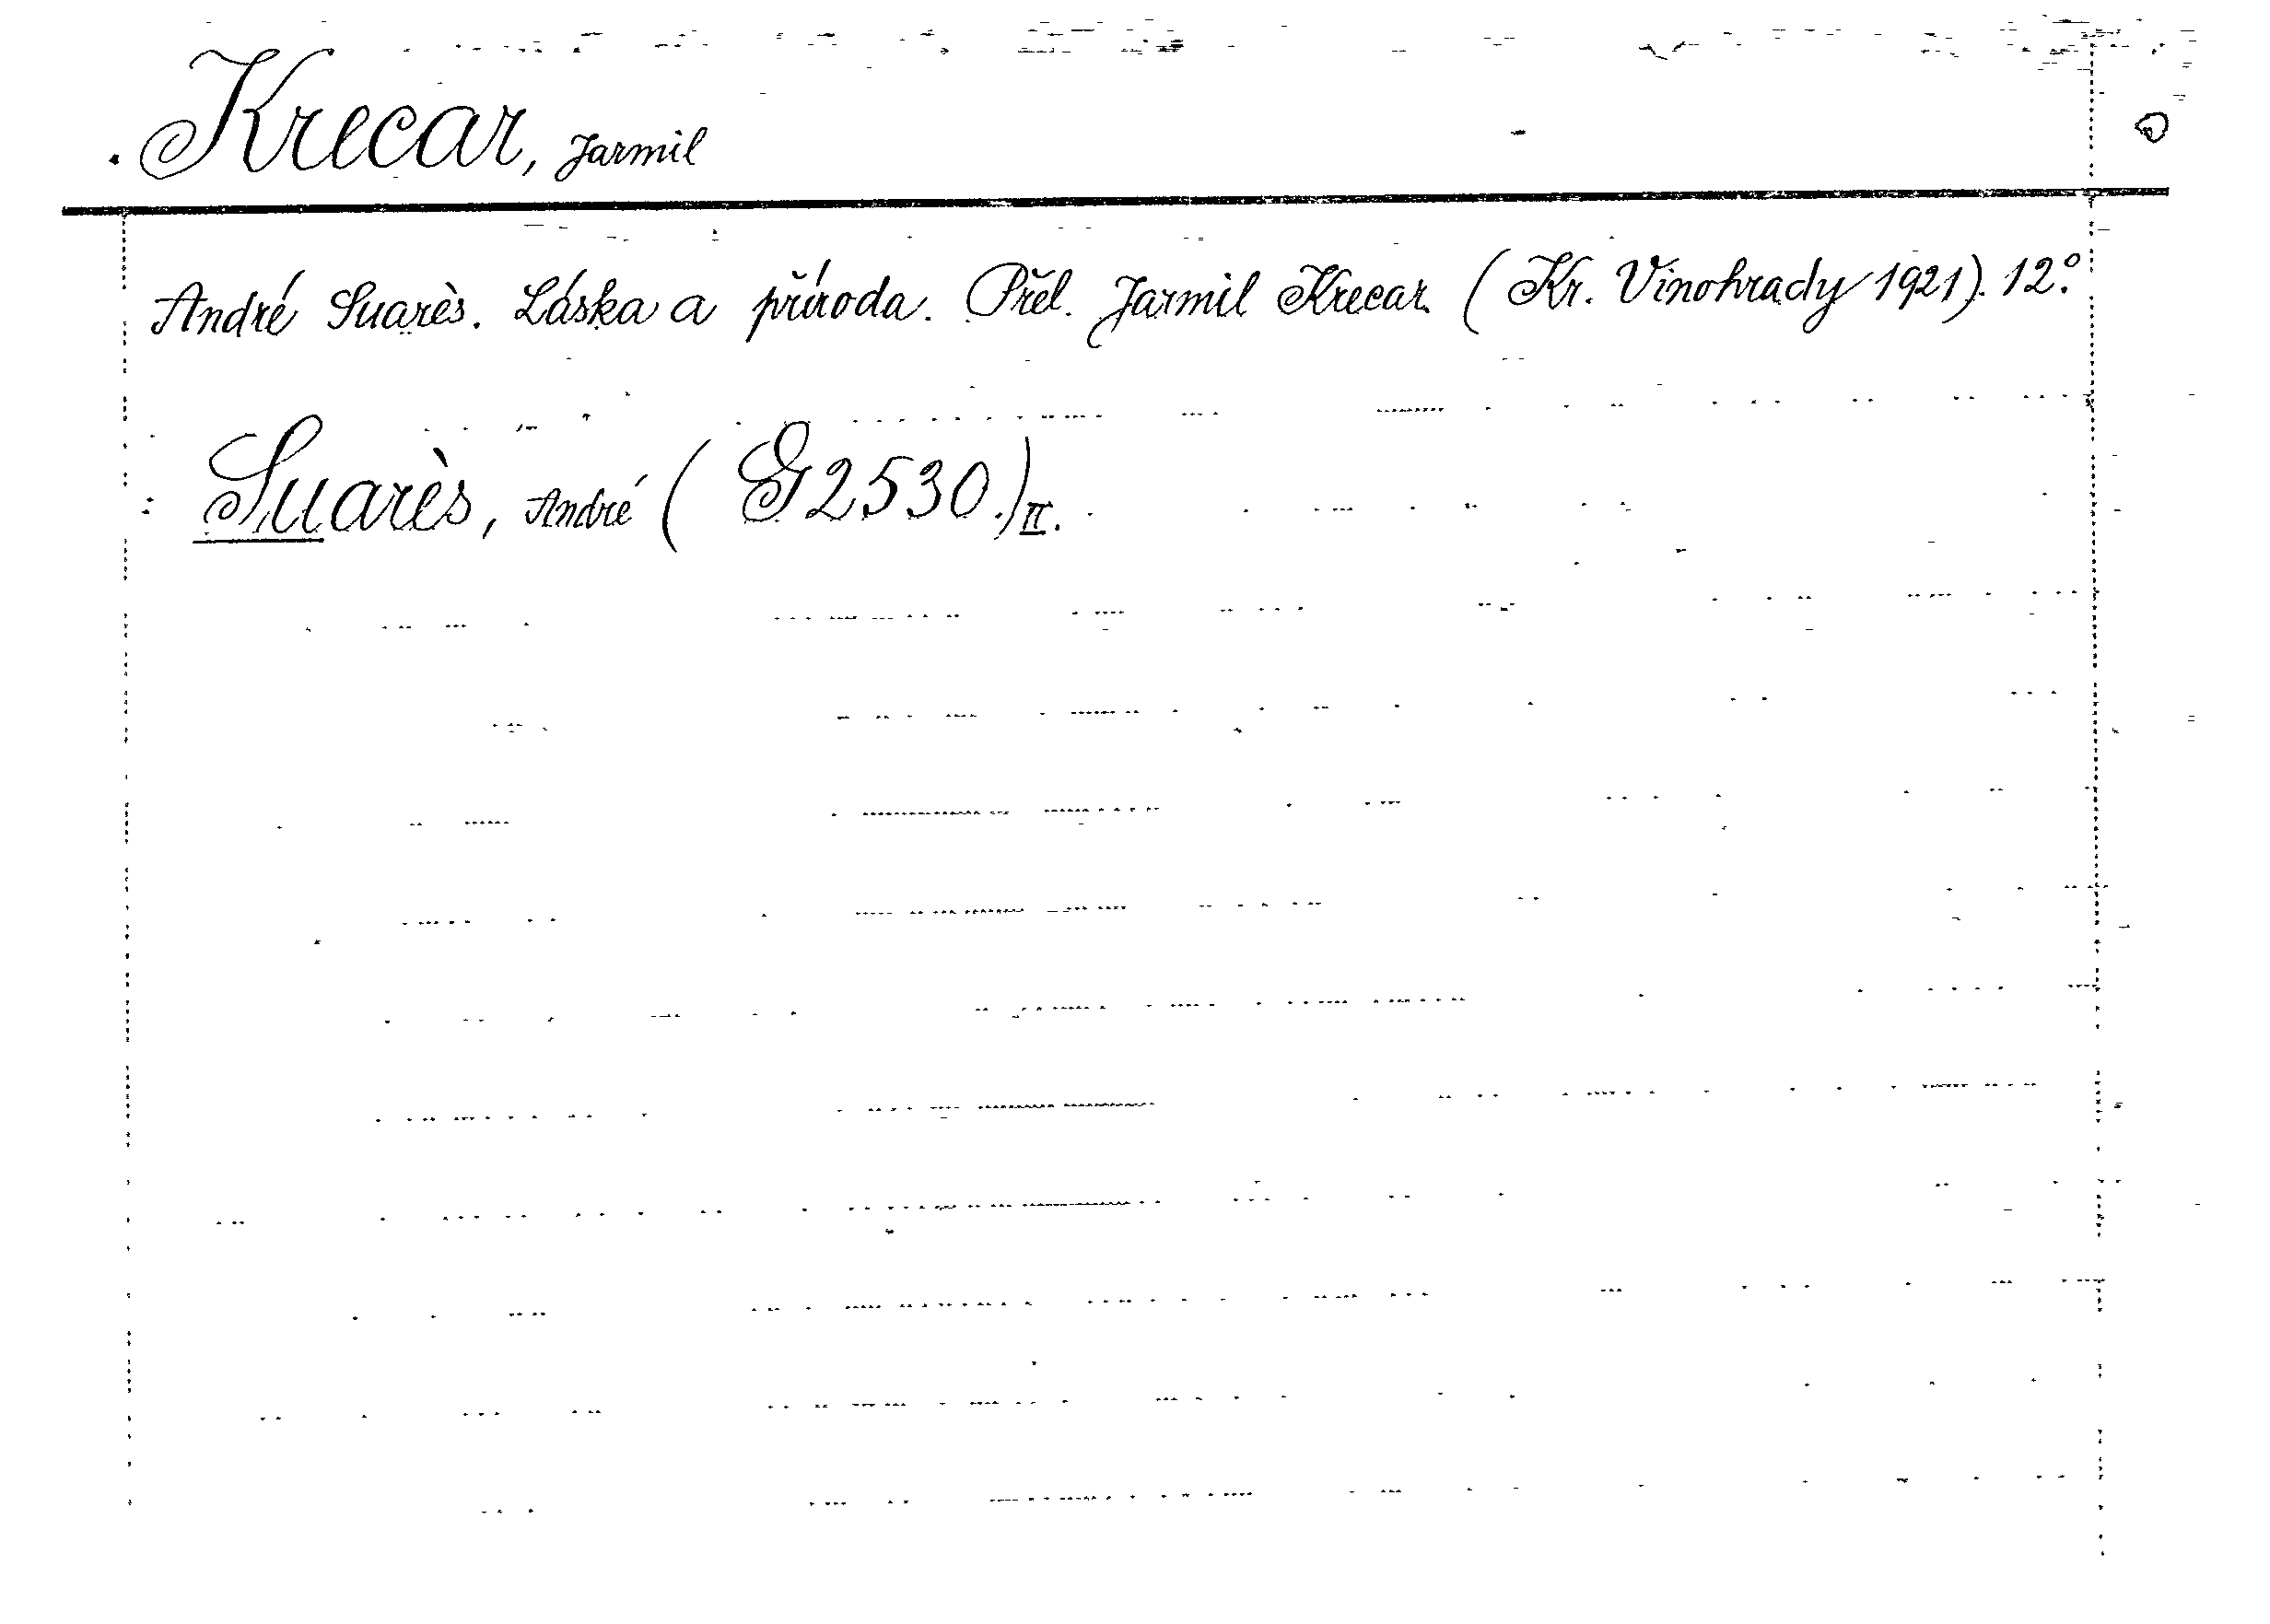 Krecar, Jarmil
André Suarès. Láska a příroda. Přel. Jarmil Krecar (Kr. Vinohrady 1921). 12°.
Suarès, André (G 2530.) II.